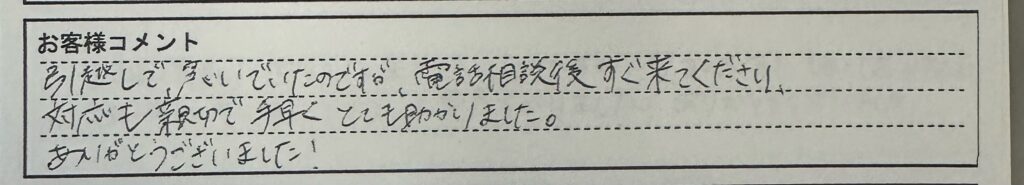 お客様コメント
引越しで、急いでいたのですが、電話相談後すぐ来てください、
対応も親切で手早く とても助かりました。
ありがとうございました!